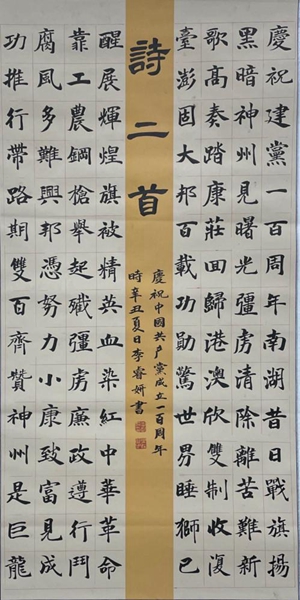 慶祝建黨一百周年南湖昔日戰旗揚
黑暗神州見曙光彊虜清除離苦難新
歌高奏踏康莊回歸港澳欣雙制收復
臺澎固大邦百載功勛驚世界睡獅已
詩二首
慶祝中國共产黨成立一百周年
時辛丑夏日李睿妍書
醒展輝煌旗被精英血染紅中華革命
靠工農鋼槍舉起殲彊虜廉政遵行鬥
腐風多難興邦憑努力小康致富見成
功推行帶路期雙百齊贊神州是巨龍